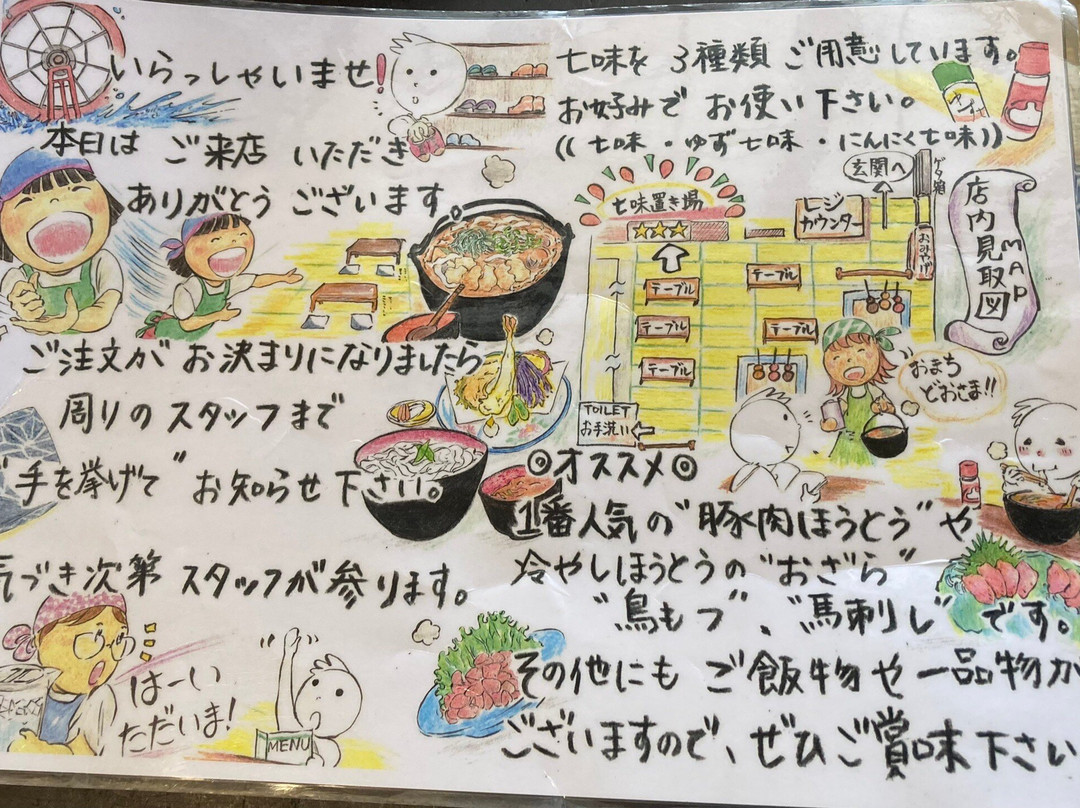 いらっしゃいませ!
本日は ご来店 いただき
ありがとう ございます。
ご注文が お決まりになりましたら
周りの スタッフまで
"手を挙げて" お知らせ下さい。
気づき次第 スタッフが参ります。
はーい
ただいま!
MENU
七味を 3種類 ご用意しています。
お好みで お使い下さい。
((七味・ゆず七味・にんにく七味))
玄関へ
ゲタ箱
店内見取図
MAP
七味置き場
レジ
カウンター
おみやげ
テーブル
テーブル
テーブル
テーブル
テーブル
TOILET
お手洗い
おまち
どおさま!!
◎オススメ◎
1番人気の"豚肉ほうとう"や
冷やしほうとうの"おざら"
"鳥もつ"、"馬刺し"です。
その他にも ご飯物や一品物が
ございますので、ぜひご賞味下さい